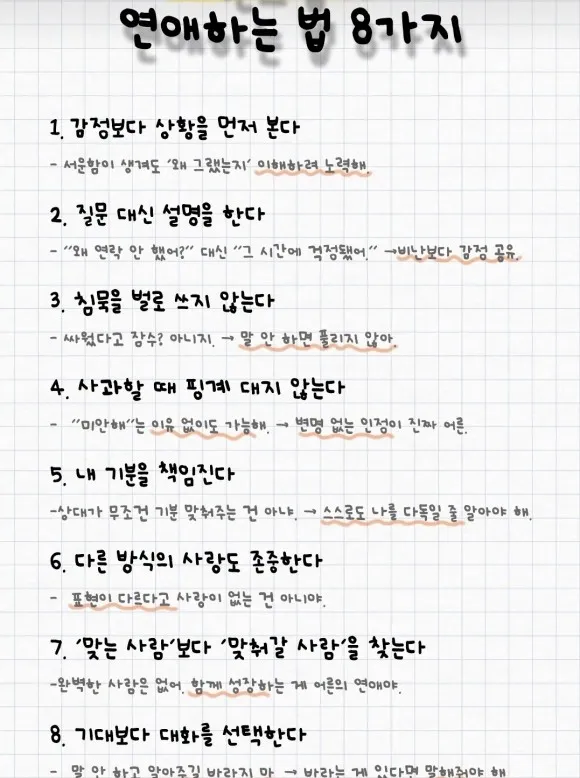 연애하는 법 8가지
1. 감정보다 상황을 먼저 본다
- 서운함이 생겨도 '왜 그랬는지' 이해하려 노력해.
2. 질문 대신 설명을 한다
- "왜 연락 안 했어?" 대신 "그 시간에 걱정됐어." →비난보다 감정 공유.
3. 침묵을 벌로 쓰지 않는다
- 싸웠다고 잠수? 아니지. → 말 안 하면 풀리지 않아.
4. 사과할 때 핑계 대지 않는다
- "미안해"는 이유 없이도 가능해. → 변명 없는 인정이 진짜 어른.
5. 내 기분을 책임진다
-상대가 무조건 기분 맞춰주는 건 아냐. → 스스로도 나를 다독일 줄 알아야 해.
6. 다른 방식의 사랑도 존중한다
- 표현이 다르다고 사랑이 없는 건 아니야.
7. '맞는 사람'보다 '맞춰갈 사람'을 찾는다
-완벽한 사람은 없어. 함께 성장하는 게 어른의 연애야.
8. 기대보다 대화를 선택한다
- 말 안 하고 알아주길 바라지 마 → 바라는 게 있다면 말해줘야 해